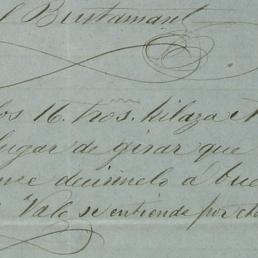 Bustamant
los 16. tros. hilaza
lugar de girar que
decirmelo á bue
Vale se entiende por